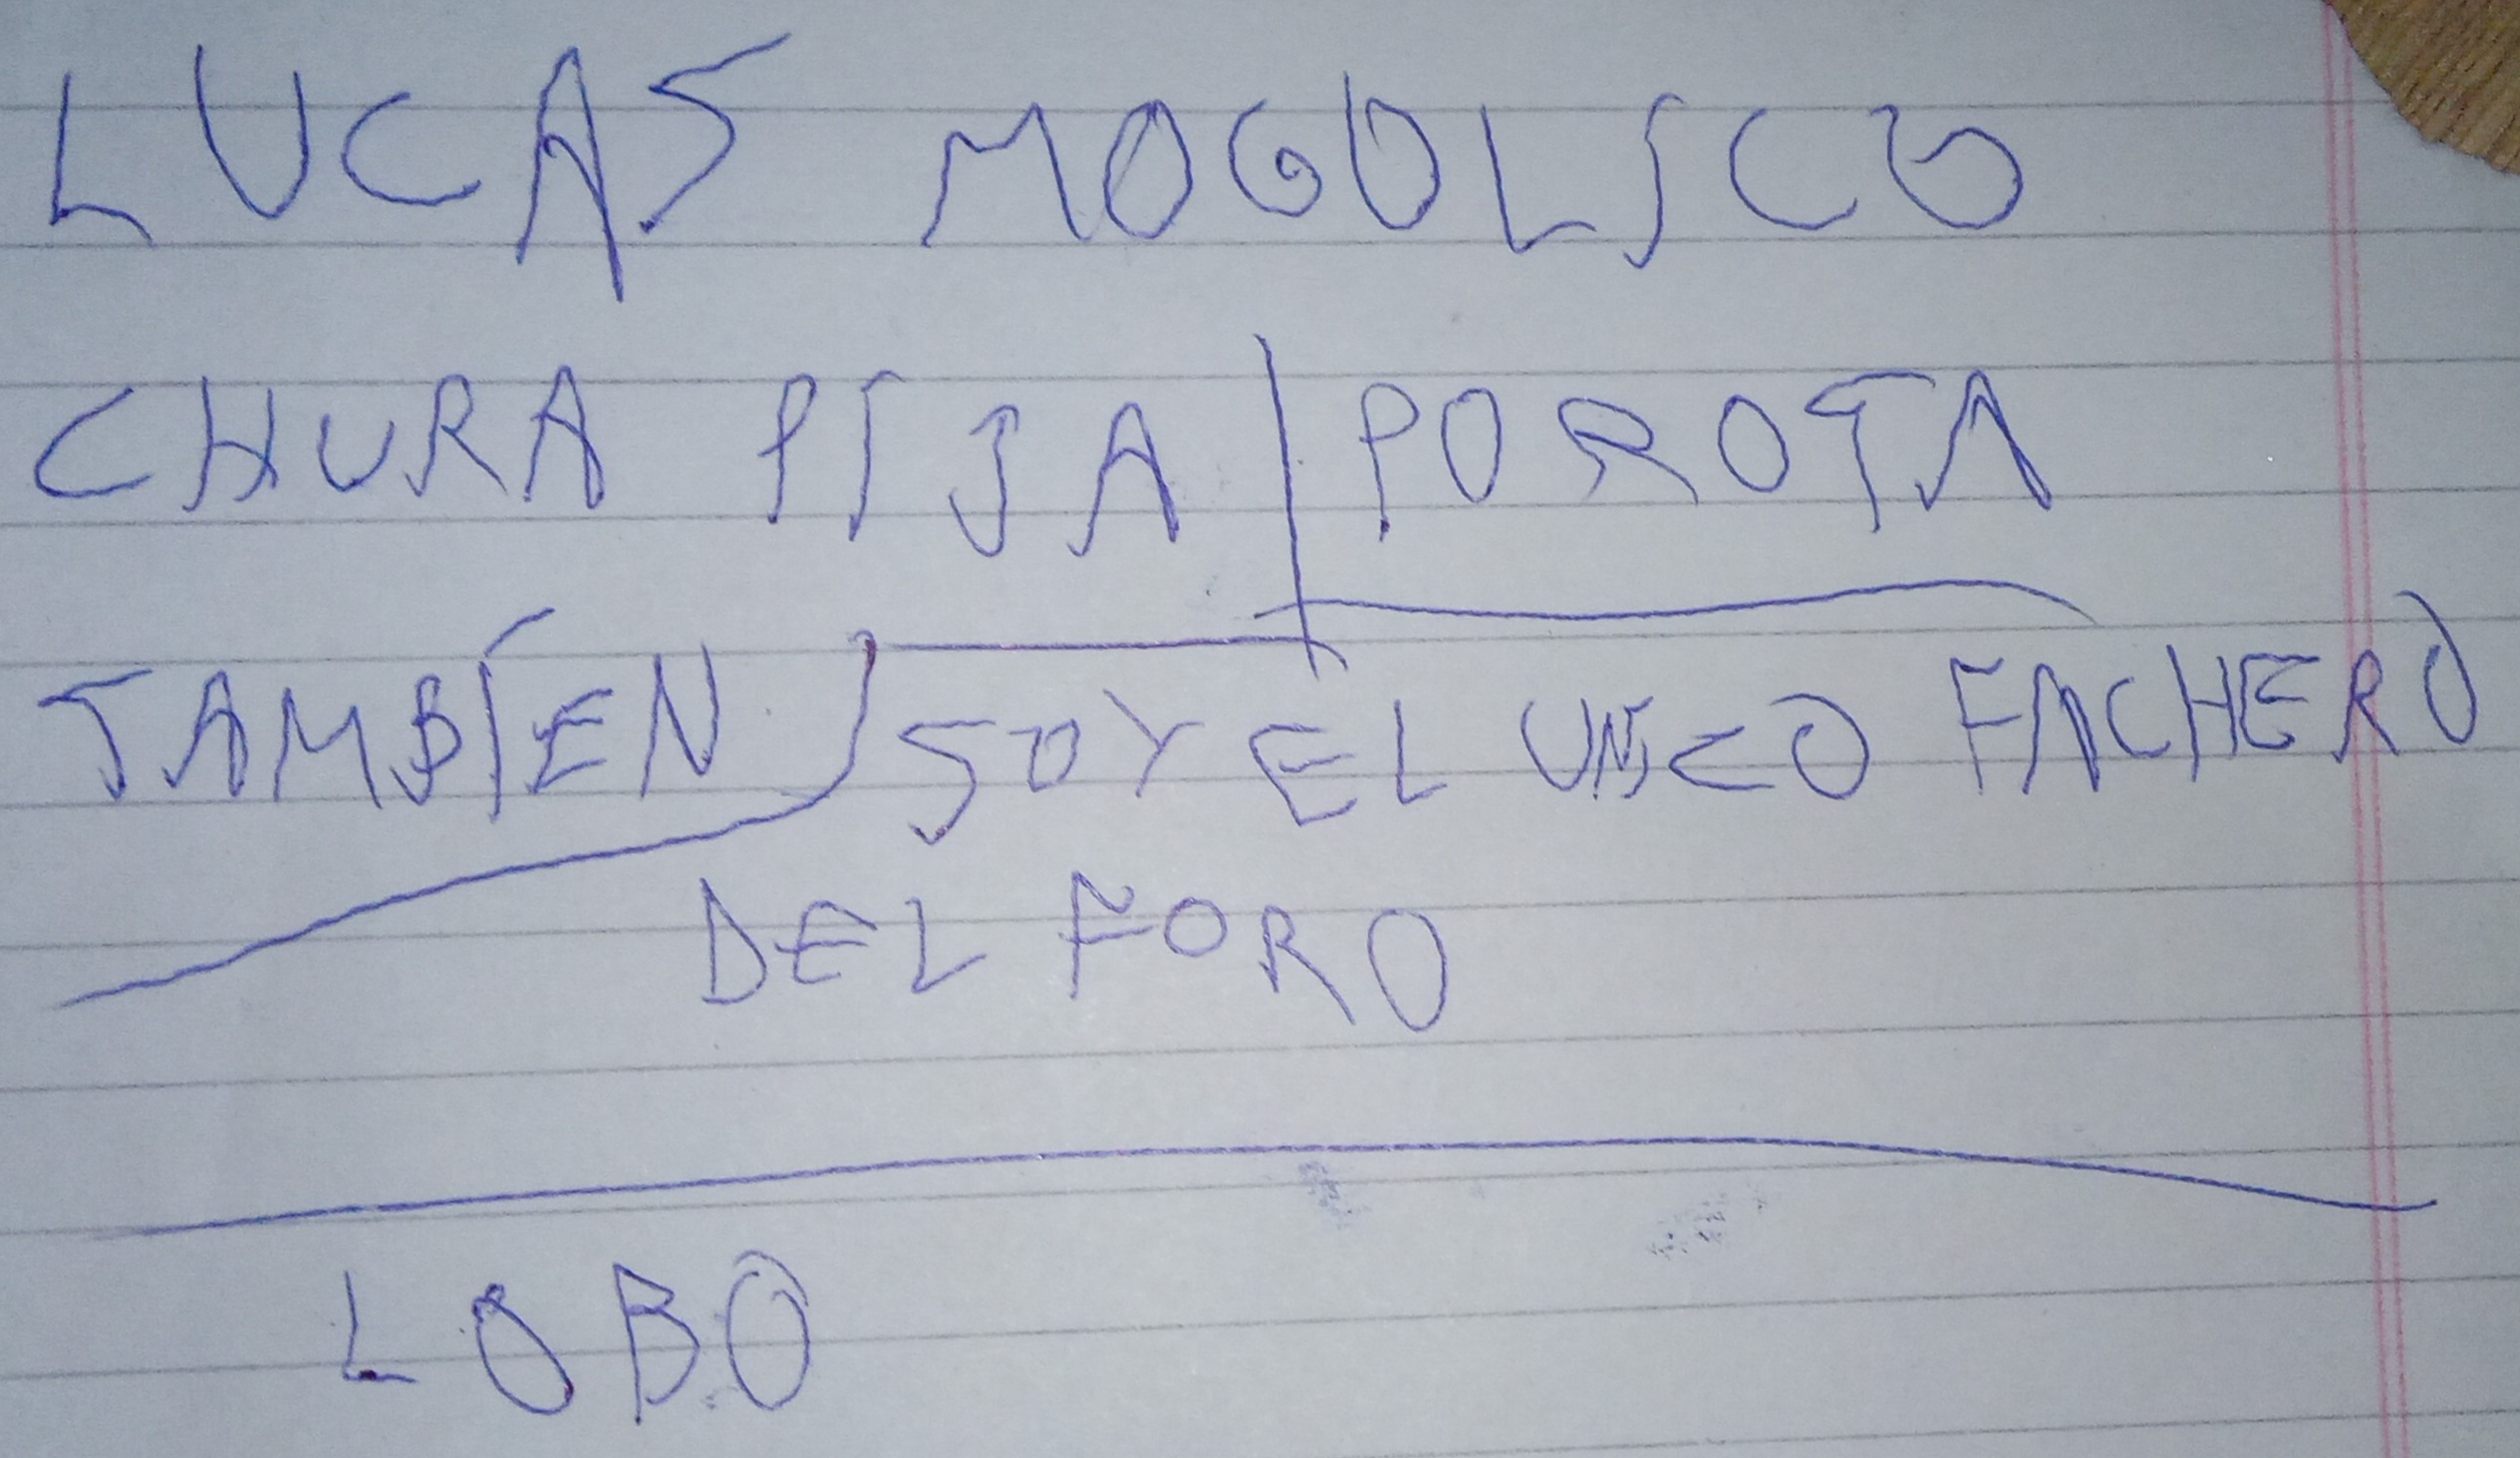 LUCAS MOGOLICO
CHURA PIJA
POROTA
TAMBIEN
SOY EL UNICO FACHERO
DEL FORO
LOBO